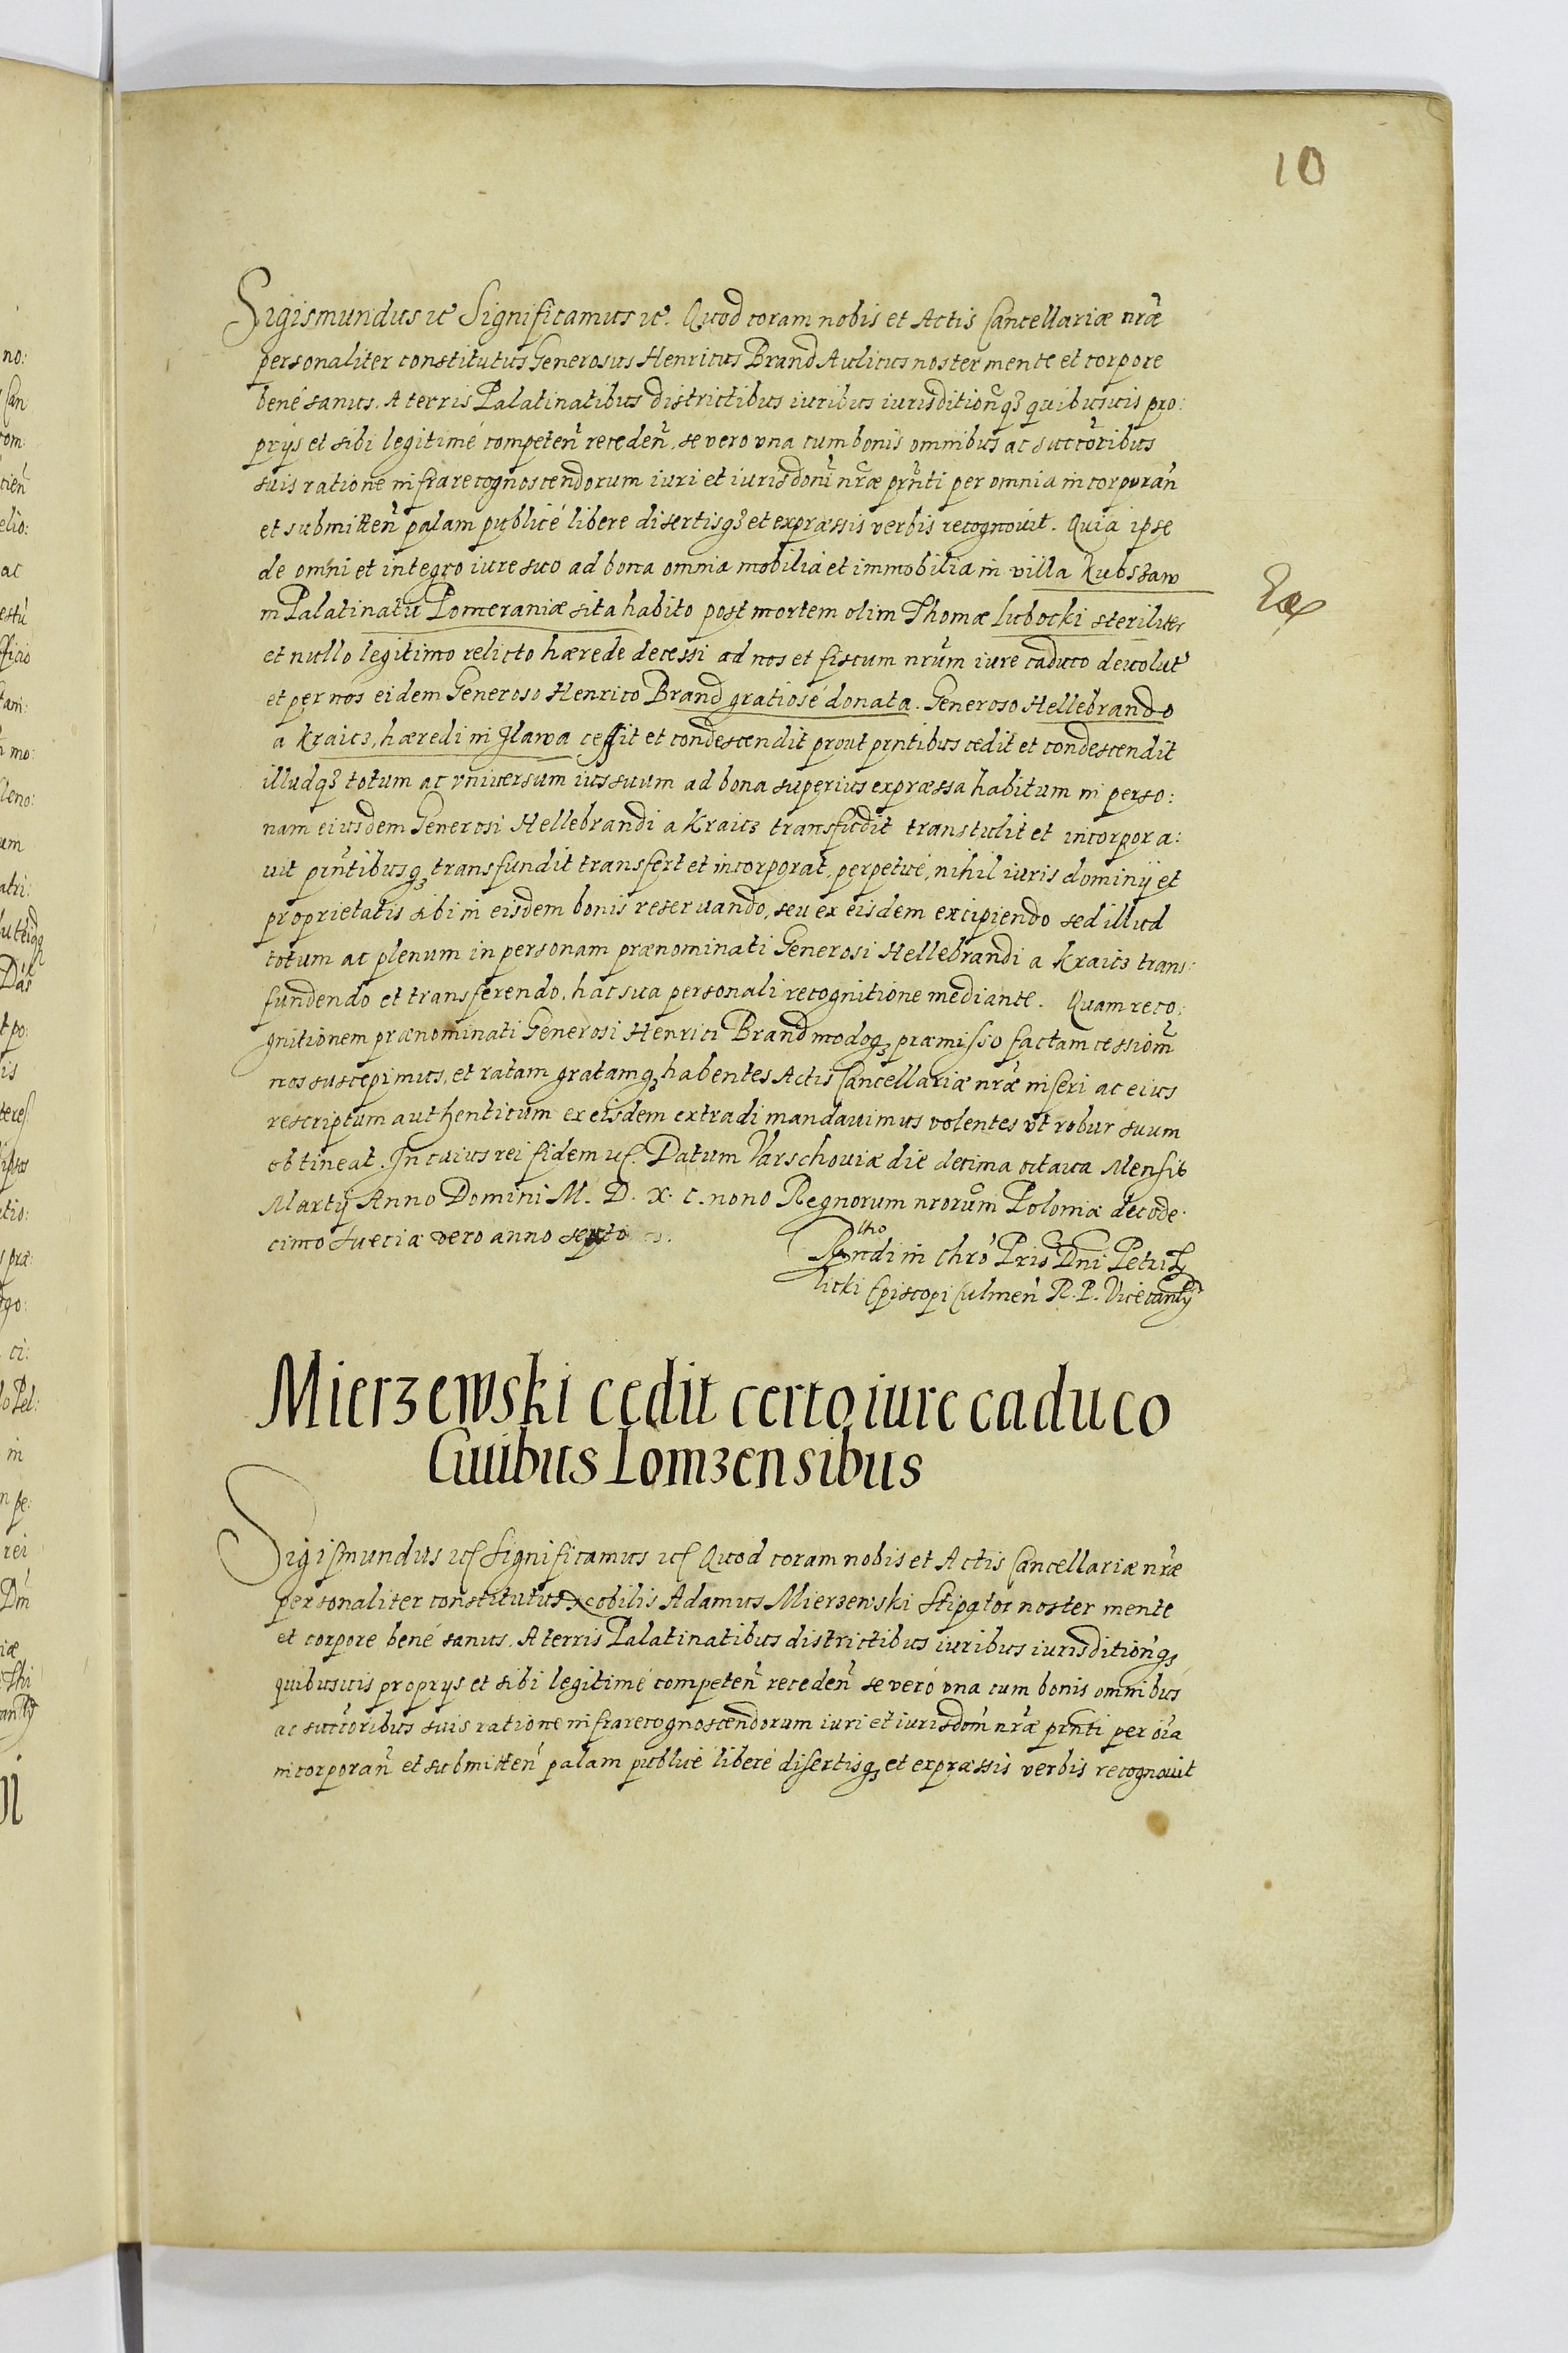 10
Sigismundus etc Significamus etc. Quod coram nobis et Actis Cancellariæ nr̃æ
personaliter constitutus Generosus Henricus Brand Aulicus noster mente et corpore
bené sanus. A terris Palatinatibus districtibus iuribus iurisditionq̃ȝ quibusuis pro:
prÿs et sibi legitimé competeñ recedeñ. se vero vna cum bonis omnibus ac succ̃oribus
suis ratione infrarecognoscendorum iuri et iurisdoñi nr̃æ prñti per omnia incorporañ
et submitteñ palam publicé libere disertisqȝ et expræssis verbis recognouit. Quia ipse
de omni et integro iure suo ad bona omnia mobilia et immobilia in villa Kubsław
in Palatinatu Pomeraniæ sita habito post mortem olim Thomæ Lubocki steriliter
et nullo legitimo relicto hærede decessi ad nos et fiscum nrũm iure caduco deuolut
et per nos eidem Generoso Henrico Brand gratiosé donata. Generoso Hellebrando
a Kraicz, hæredi in Jlawa cessit et condescendit prout prntibus cedit et condescendit
illudqȝ totum ac vniuersum ius suum ad bona superius expræssa habitum in perso:
nam eiusdem Generosi Hellebrandi a Kraicz transfudit transtulit et incorpora:
uit prñtibusqȝ transfundit transfert et incorporat, perpetué, nihil iuris dominÿ et
proprietatis sibi in eisdem bonis reseruando, seu ex eisdem excipiendo sed illud
totum ac plenum in personam prænominati Generosi Hellebrandi a Kraicz trans:
fundendo et transferendo, hac sua personali recognitione mediante. Quam reco:
gnitionem prænominati Generosi Henrici Brand modoqȝ præmisso factam cessionm̃
nos suscepimus, et ratam gratamqȝ habentes Actis Cancellariæ nr̃æ inseri ac eius
rescriptum authenticum ex eisdem extradi mandauimus volentes vt robur suum
obtineat. In cuius rei fidem etc. Datum Varschouiæ die decima octaua Mensis
Martÿ Anno Domini M. D. X. C. nono Regnorum nrorum̃ Poloniæ duode:
cimo Sueciæ vero anno sexto
Rndi in Chrõ Pris Dñi Petri Ty
licki Episcopi Culmeñ R. P. Vicecanlÿ
Mierzewski cedit certo iure caduco
Ciuibus Lomzensibus
Sigismundus etc Significamus etc Quod coram nobis et Actis Cancellariæ nr̃æ
personaliter constitutus Nobilis Adamus Mierzewski Stipator noster mente
et corpore bené sanus. A terris Palatinatibus districtibus iuribus iurisditionq̃ȝ
quibusuis proprÿs et sibi legitimé competeñ recedeñ se veró vna cum bonis omnibus
ac succ̃oribus suis ratione infrarecognoscendorum iuri et iurisdoñi nr̃æ prñti per oĩa
incorporañ et submitteñ palam publicé liberé disertisqȝ et expræssis verbis recognouit